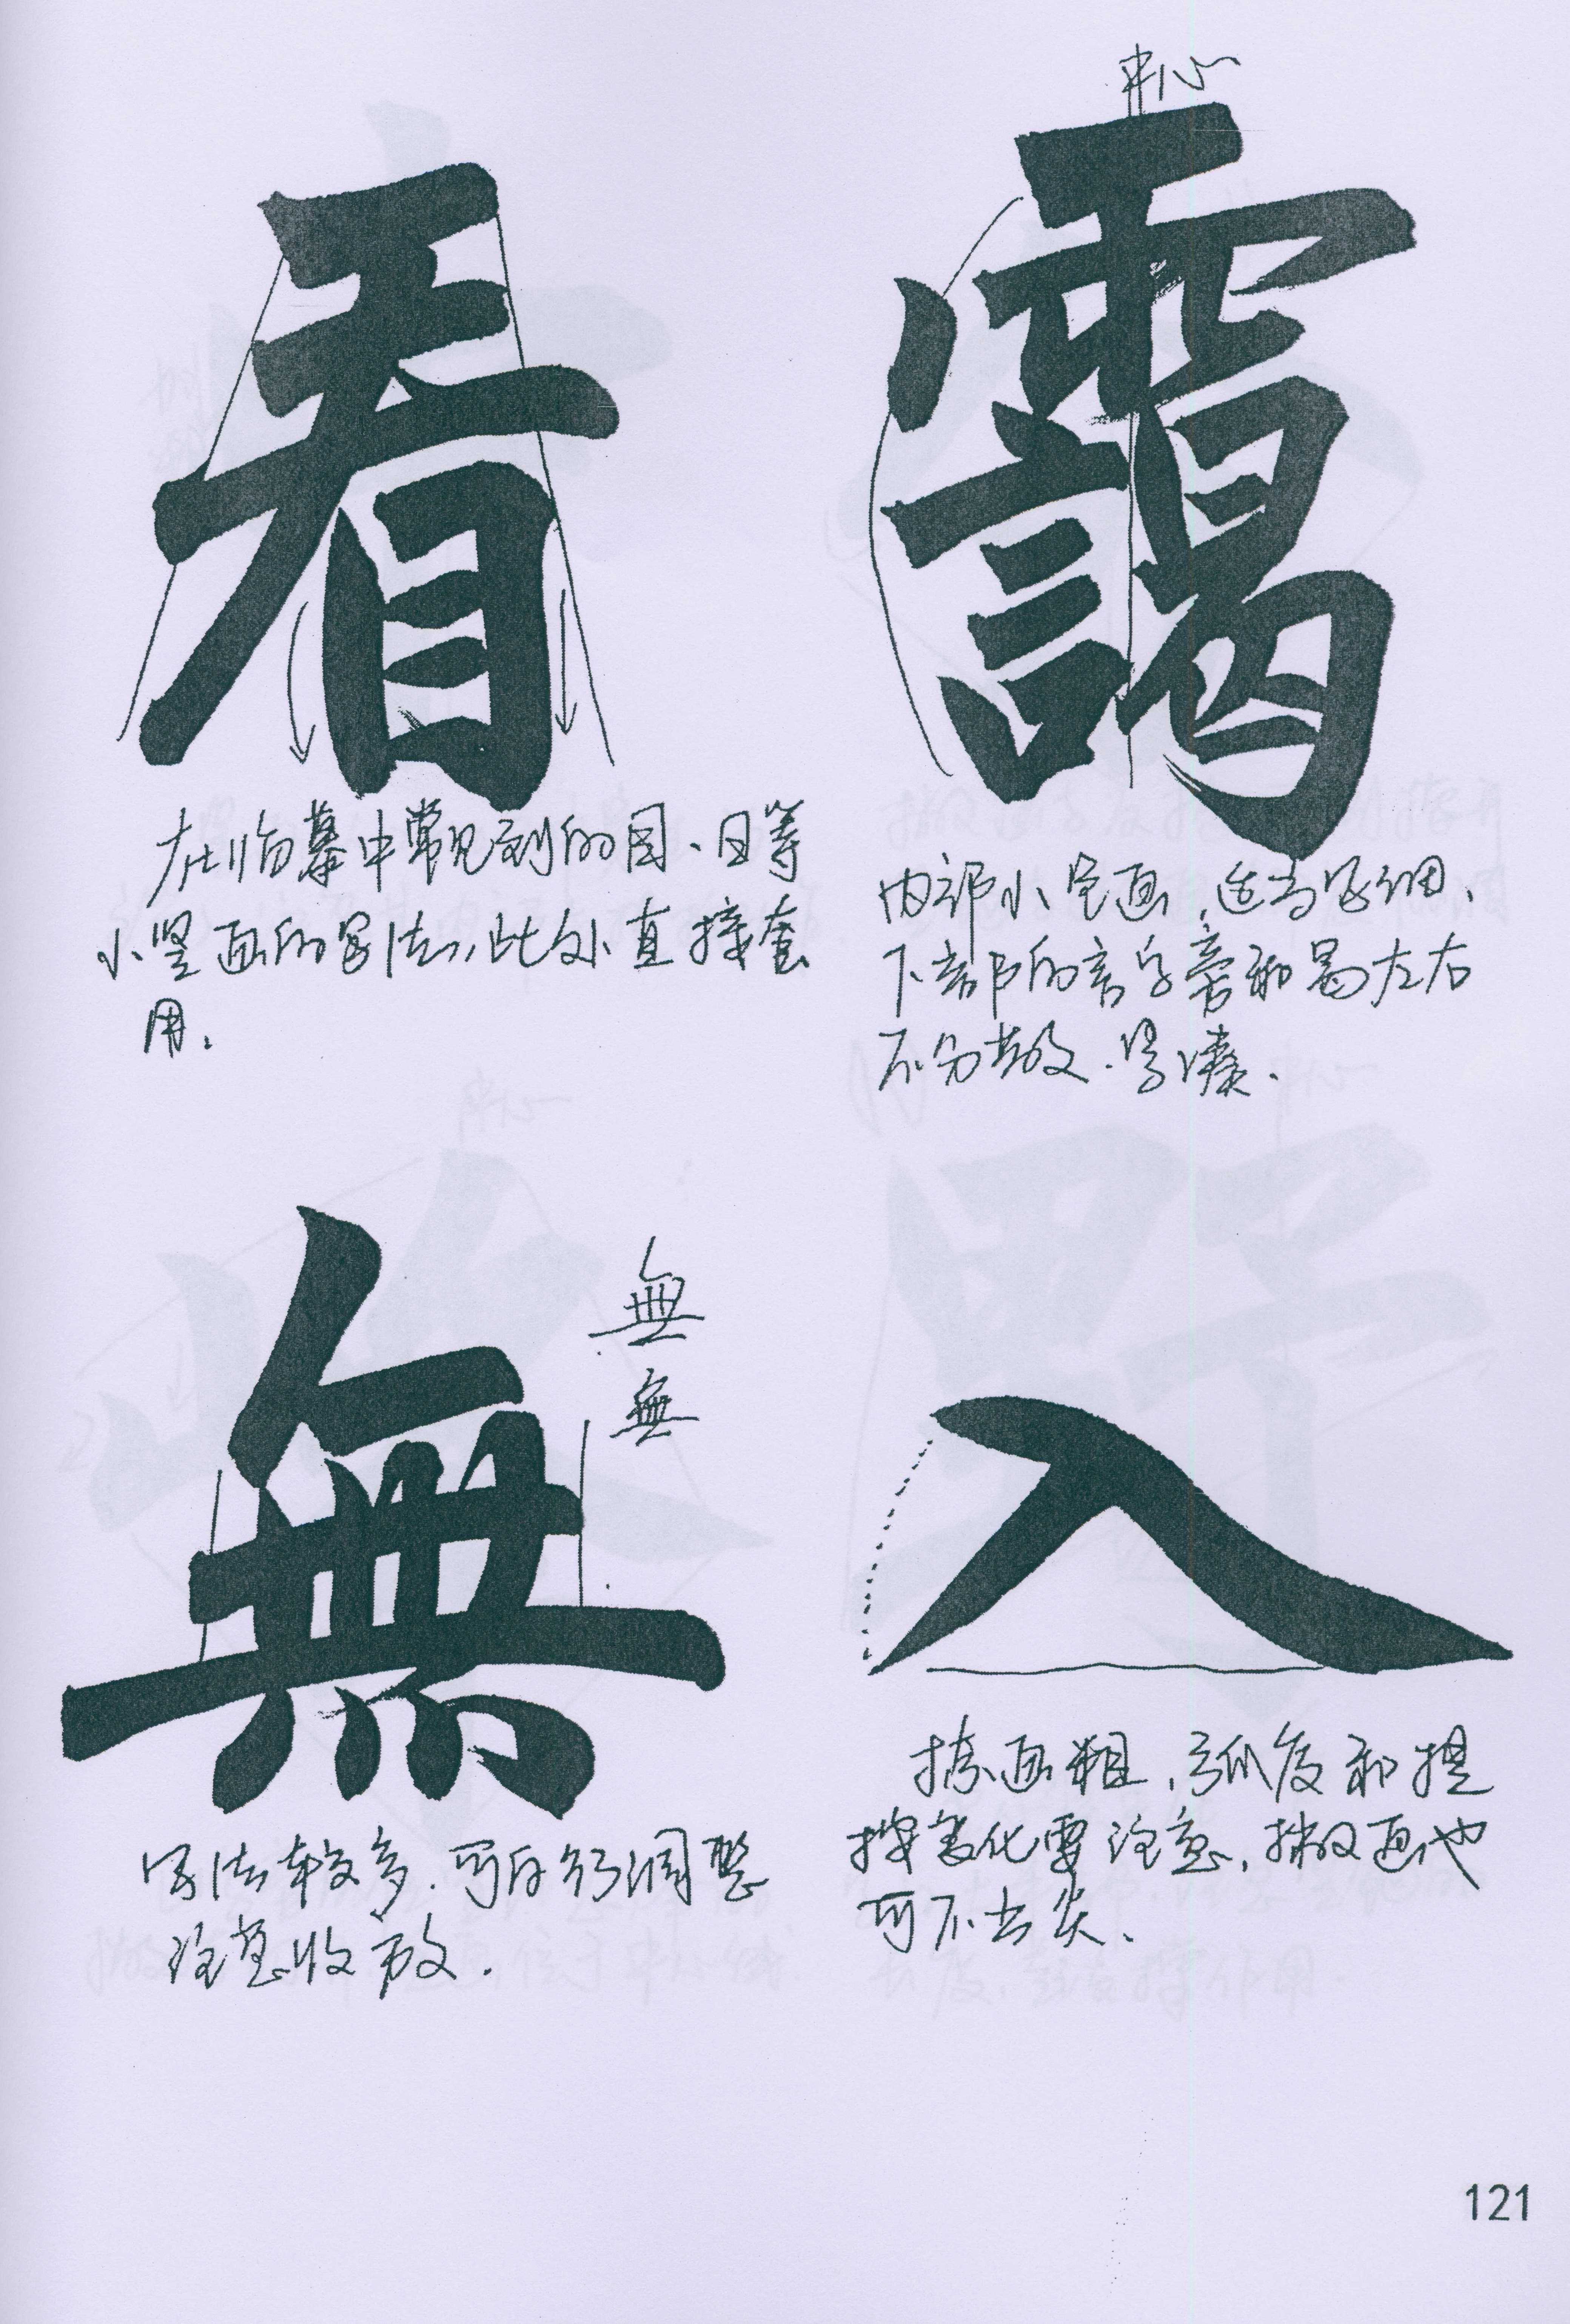 中心
看
靄
在临摹中常见到的目、日等
小竖画的写法,此处直接套
用.
内部小笔画,适当写细、
下部的言字旁和曷左右
不分散.紧凑.
無
無
無
入
写法较多.可自行调整
注意收放.
捺画粗,弧度和提
按变化要注意,撇画也
可不出尖.
121